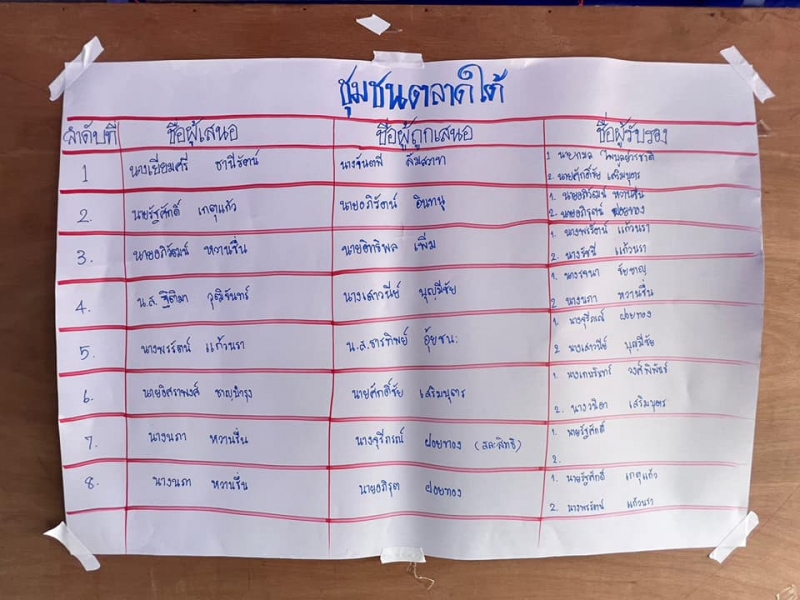 ชุมชนตลาดใต้
ลำดับที่ ชื่อผู้เสนอ ชื่อผู้ถูกเสนอ ชื่อผู้รับรอง
1 นางเยี่ยมศรี ธานีรัตน์ นางจันตพี ลิ้มสวาขา 1. นายกมล ไพบูลย์วรชาติ
2. นายศักดิ์ชัย เสริมบุตร
2. นายรัฐศักดิ์ เกตุแก้ว นายอภิรัตน์ อินทานู 1. นายอภิวัฒน์ หวานชื่น
2. นายอภิรุต ฝอยทอง
3. นายอภิวัฒน์ หวานชื่น นายอิทธิพล เพิ่ม 1. นางพรรัตน์ แก้วนรา
2. นางรัชนี แก้วนรา
4. น.ส.ฐิติมา วุฒิจันทร์ นางเสาวนีย์ บุญมีชัย 1. นางรจนา ชัยชาญ
2 นางนภา หวานชื่น
5. นางพรรัตน์ แก้วนรา น.ส.ธารทิพย์ อุ้ยชนะ 1. นางจุรีภรณ์ ฝอยทอง
2 นางเสาวนีย์ บุญมีชัย
6. นายอิศราพงส์ ชาญบำรุง นายศักดิ์ชัย เสริมบุตร 1. วงศ์พิพันธ์
2. นางวนิดา เสริมบุตร
7. นางนภา หวานชื่น นางจุรีภรณ์ ฝอยทอง (สละสิทธิ์) 1. นายรัฐศักดิ์
2.
8. นางนภา หวานชื่น นายอภิรุต ฝอยทอง 1. นายรัฐศักดิ์ เกตุแก้ว
2. นางพรรัตน์ แก้วนรา